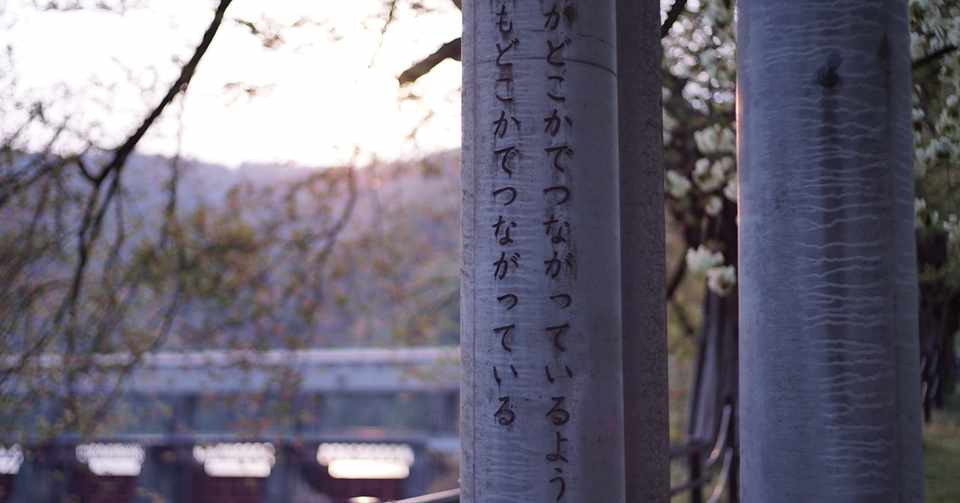 がどこかでつながっているよう
もどこかでつながっている